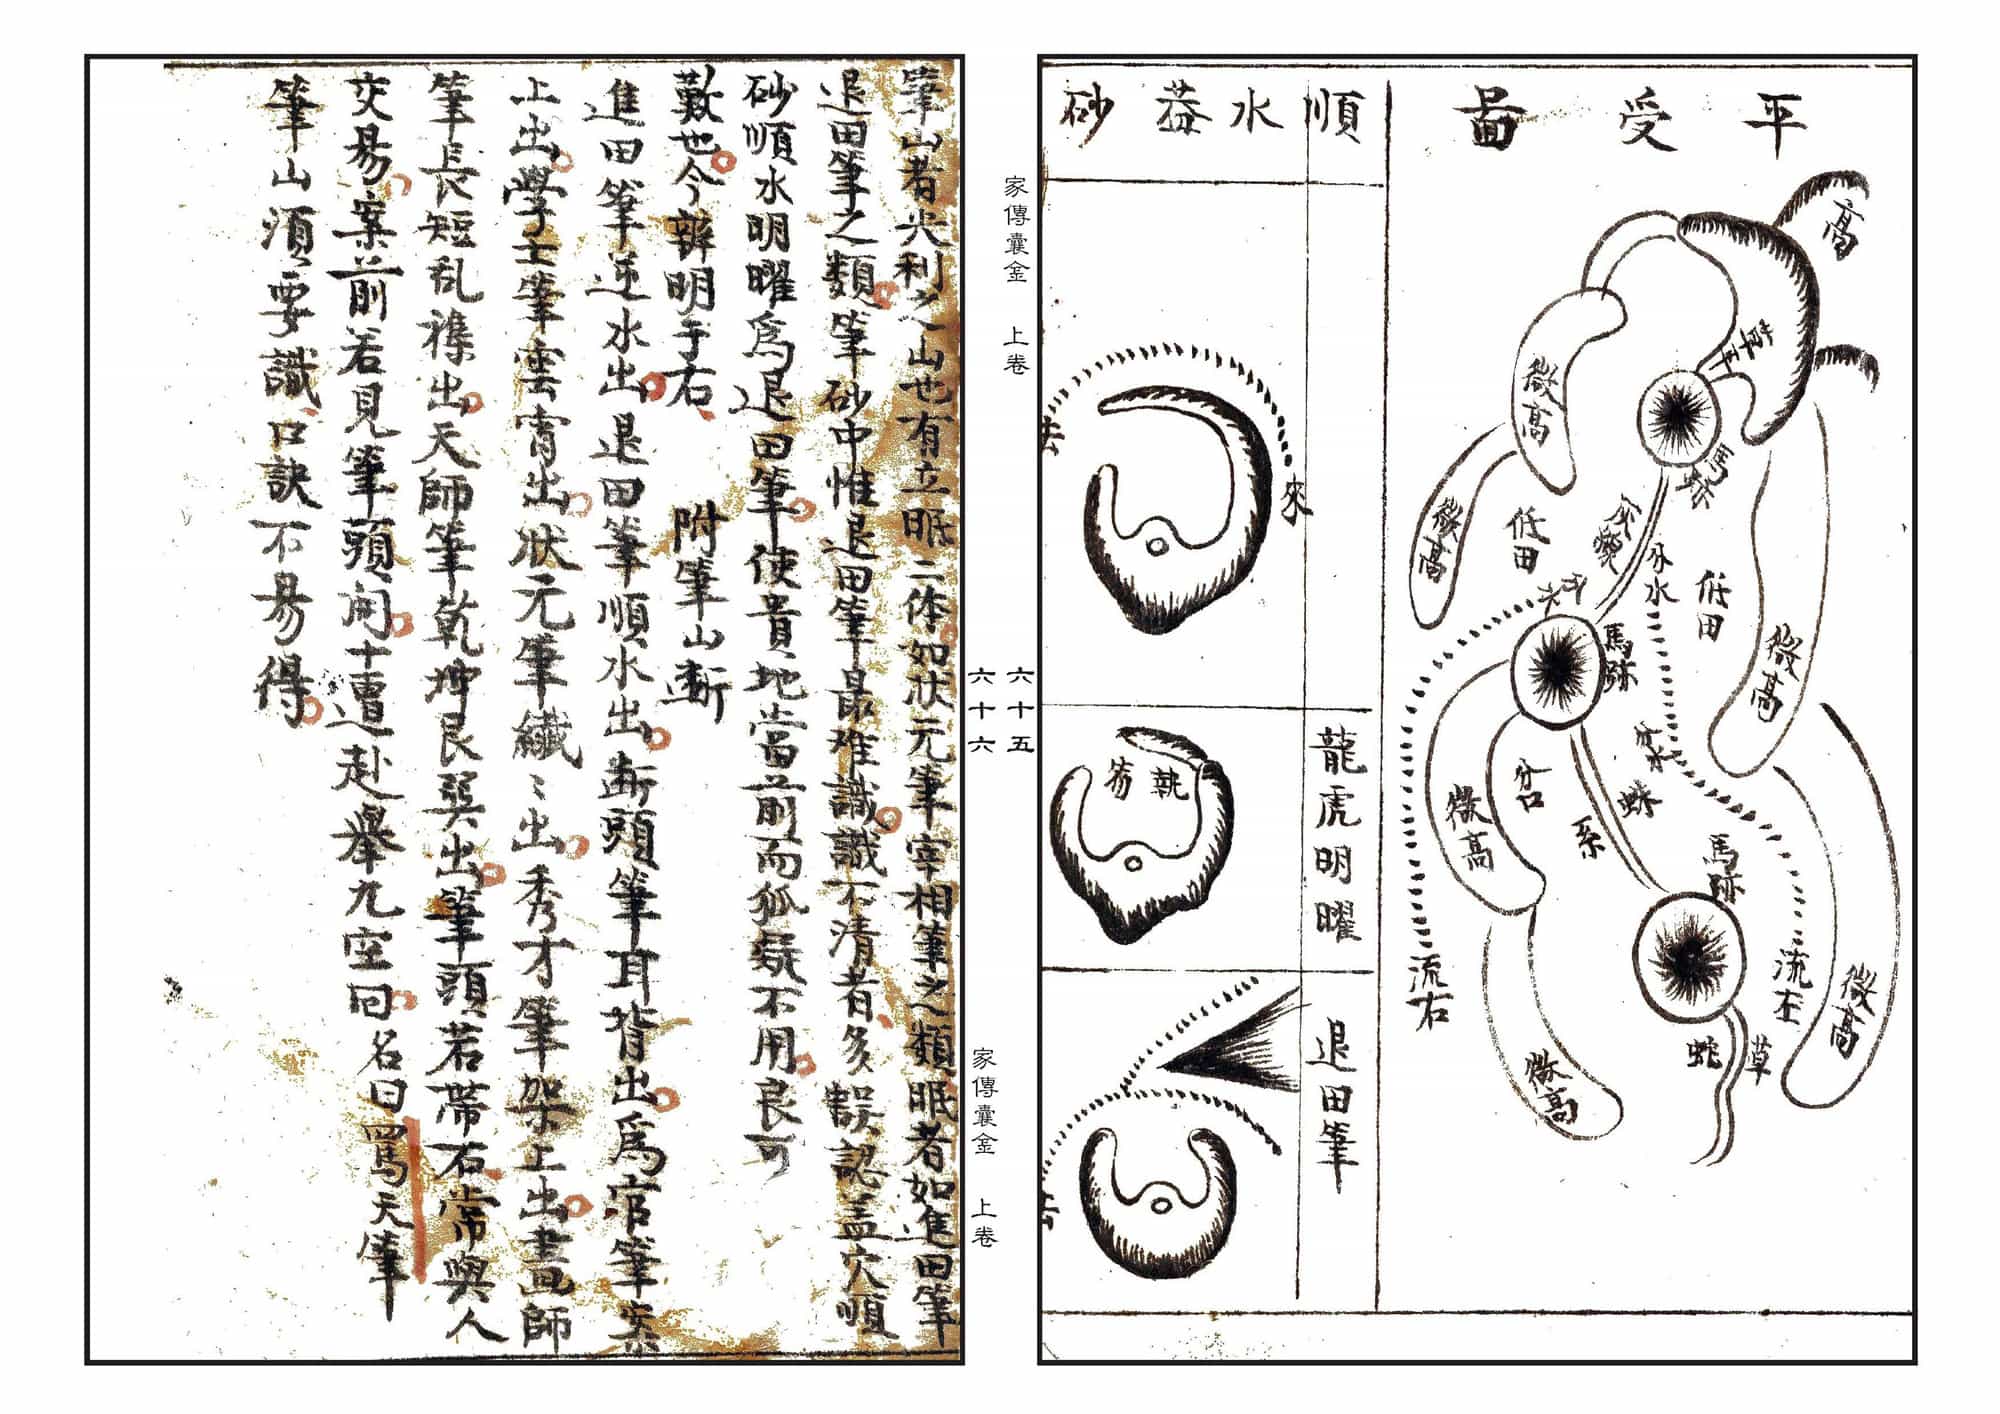 平受圖
高
微高
微高
低田
分水
低田
微高
馬跡
微高
分口
蛛
系
馬跡
流右
流左
微高
微高
草
蛇
順水蓋砂
來
去
龍虎明曜
執
笏
退田筆
去
家傳囊金 上卷
六十五
六十六
家傳囊金 上卷
筆山者尖利之山也有立眠二体如狀元筆宰相筆之類眠者如進田筆
退田筆之類筆砂中惟退田筆最难識識不清者多誤認盖穴順
砂順水明曜為退田筆使貴地當前而狐疑不用良可
歎也今辨明于右 附筆山斷
進田筆逆水出退田筆順水出斷頭筆耳背出為官筆案
上出學士筆雲霄出狀元筆纖〻出秀才筆架上出畫師
筆長短乱襍出天師筆乾坤艮巽出筆頭若帶石常與人
交易案前若見筆頭開十遭赴舉九空回名曰罵天筆
筆山須要識口訣不易得